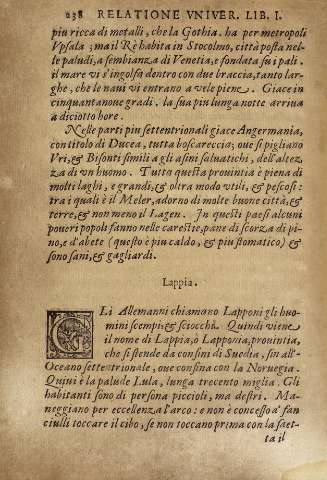 238 RELATIONE VNIVER. LIB. I.
piu ricca di metalli, che la Gothia. ha per metropoli
Vpsala; ma il Rè habita in Stocolmo, città posta nel-
le paludi, a sembianza di Venetia, e fondata su i pali.
il mare vi s'ingolfa dentro con due braccia, tanto lar-
ghe, che le naui vi entrano a vele piene. Giace in
cinquantanoue gradi. la sua piu lunga notte arriua
a diciotto hore.
Nelle parti piu settentrionali giace Angermania,
con titolo di Ducea, tutta boscareccia; oue si pigliano
Vri, & Bisonti simili a gli asini saluatichi, dell'altez-
za di vn huomo. Tutta questa prouintia è piena di
molti laghi, e grandi, & oltra modo vtili, & pescosi:
tra i quali è il Meler, adorno di molte buone città, &
terre, & non meno il Lagen. In questi paesi alcuni
poueri popoli fanno nelle carestie, pane di scorza di pi-
no, e d'abete (questo è piu caldo, & piu stomatico) &
sono sani, & gagliardi.
Lappia.
GLi Allemanni chiamano Lapponi gli huo-
mini scempi, & sciocchi. Quindi viene
il nome di Lappia, ò Lapponia, prouintia,
che si stende da confini di Suedia, sin all'-
Oceano settentrionale, oue confina con la Noruegia.
Quiui è la palude Lula, lunga trecento miglia. Gli
habitanti sono di persona piccioli, ma destri. Ma-
neggiano per eccellenza l'arco: e non è concesso a' fan
ciulli toccare il cibo, se non toccano prima con la saet-
ta il